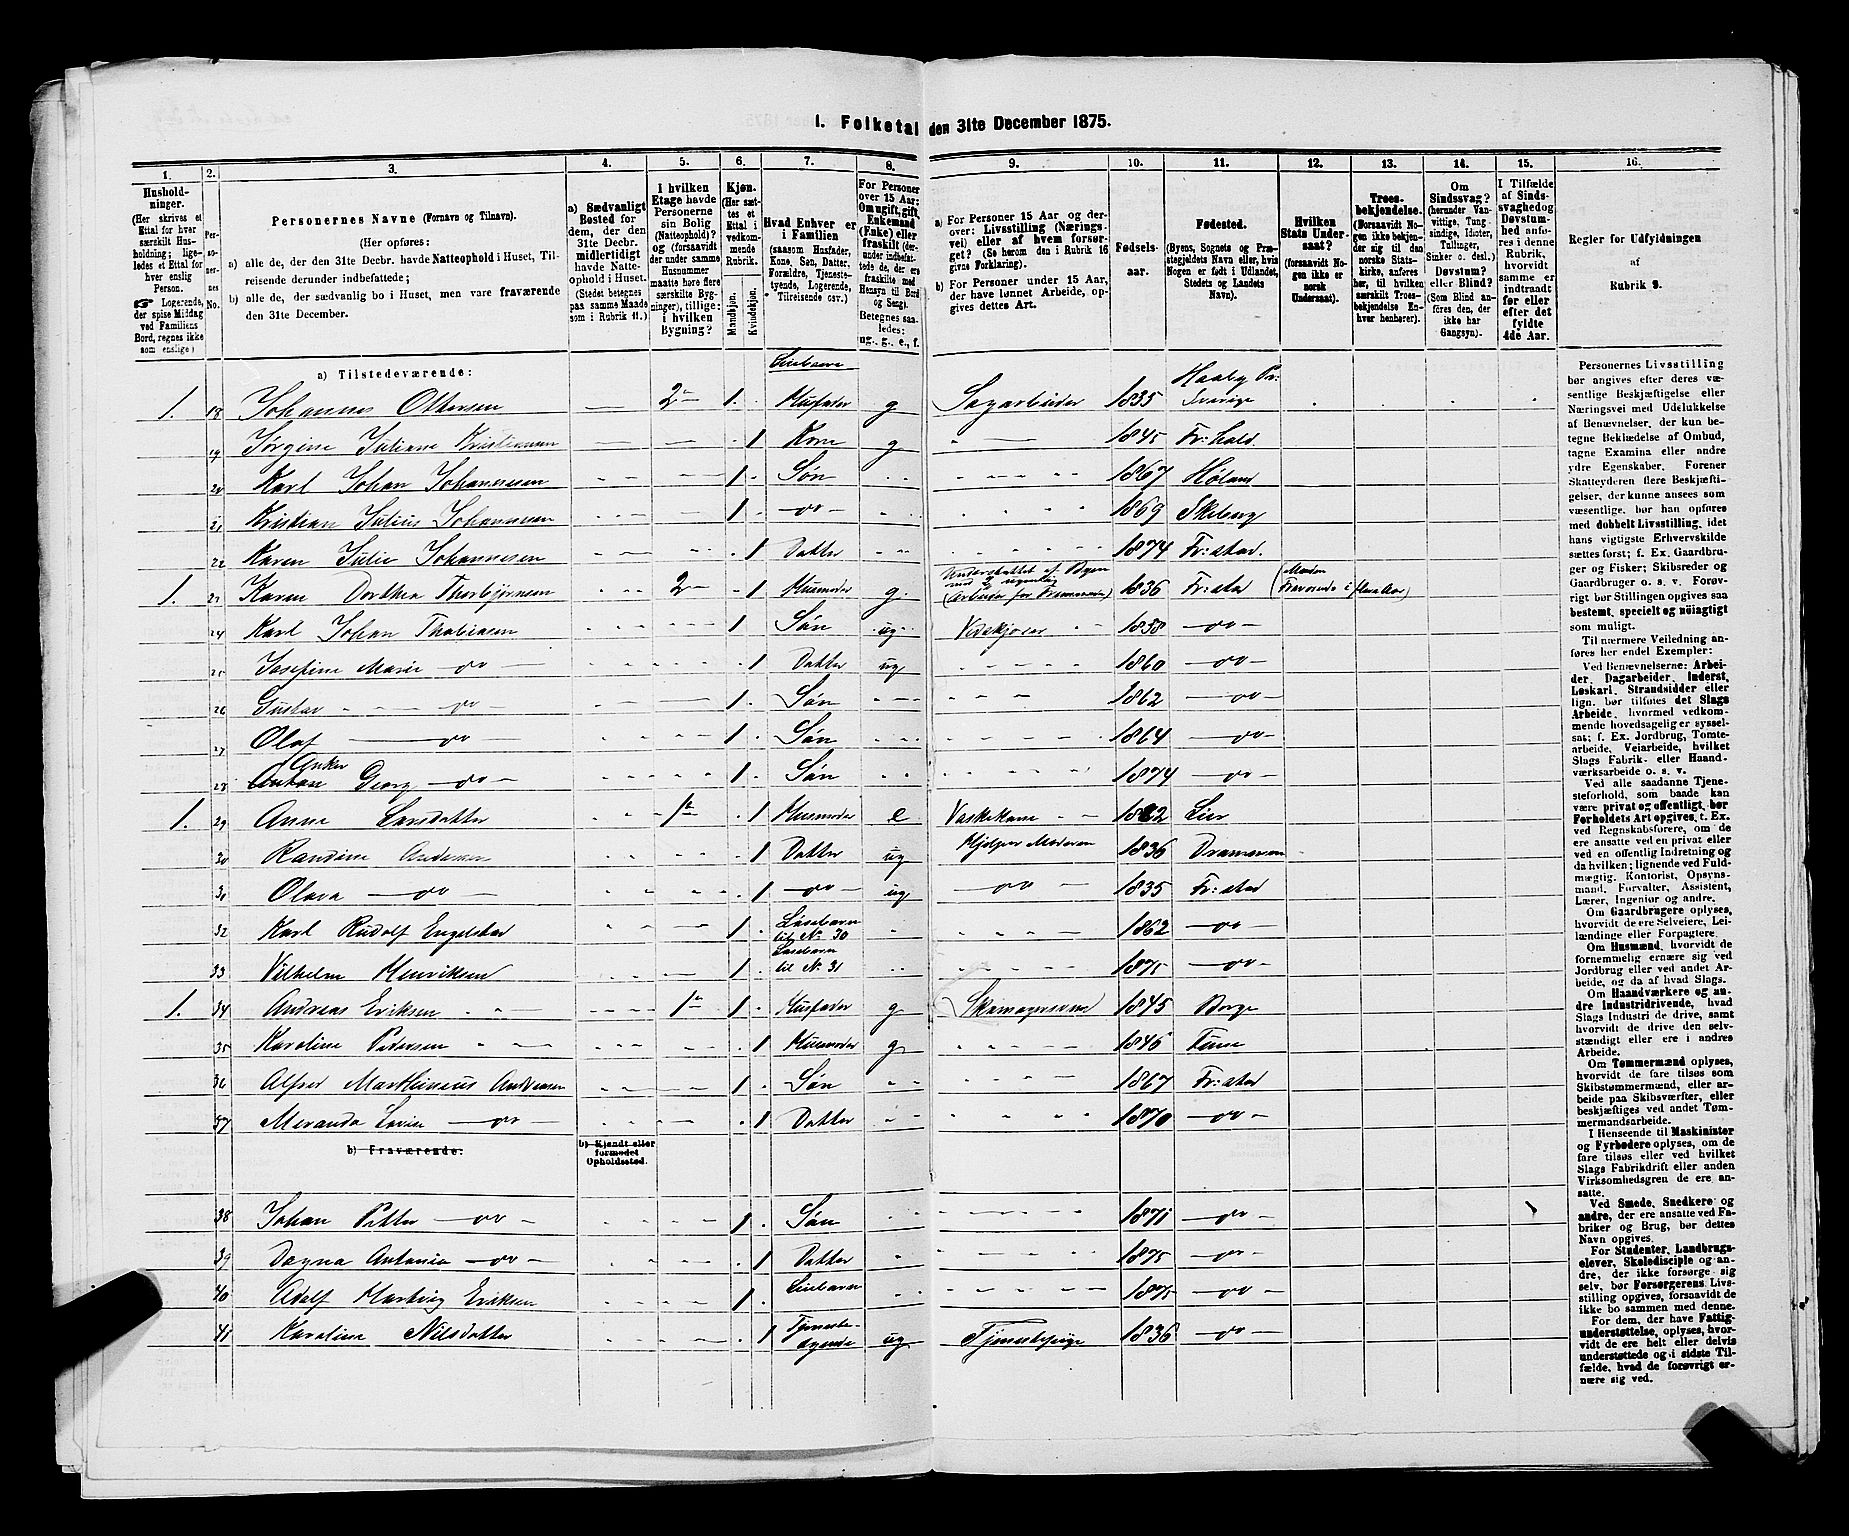 I. Folketal den 31te December 1875.
1. 2. 3. 4. 5. 6. 7. 8. 9. 10. 11. 12. 13. 14. 15. 16.
Husholdninger. (Her skrives et Ettal for hver særskilt Husholdning; ligeledes et Ettal for hver enslig Person. ☞ Logerende, der spise Middag ved Familiens Bord, regnes ikke som enslige.)
Personernes No.
Personernes Navne (Fornavn og Tilnavn).
(Her opføres:
a) alle de, der den 31te Decbr. havde Natteophold i Huset, Tilreisende derunder indbefattede;
b) alle de, der sædvanlig bo i Huset, men vare fraværende den 31te December.
a) Sædvanligt Bosted for dem, der den 31te Decbr. midlertidigt havde Natteophold i Huset. (Stedet betegnes paa samme Maade som i Rubrik 11.)
I hvilken Etage havde Personerne sin Bolig (Natteophold)? og (forsaavidt der under samme Husnummer maatte høre flere særskilte Bygninger), tillige: i hvilken Bygning?
Kjøn. (Her sættes et Ettal i vedkommende Rubrik. Mandkjøn. Kvindekjøn.
Hvad Enhver er i Familien (saasom Husfader, Kone, Søn, Datter, Forældre, Tjenestetyende, Logerende, Tilreisende osv.)
For Personer over 15 Aar: Om ugift, gift, Enkemand (Enke) eller fraskilt (derunder indbefattede de, der ere fraskilte med Hensyn til Bord og Seng). Betegnes saaledes: ug., g., e., f.
a) For Personer 15 Aar og derover: Livsstilling (Næringsvei) eller af hvem forsørget? (Se herom den i Rubrik 16 givne Forklaring).
b) For Personer under 15 Aar, der have lønnet Arbeide, opgives dettes Art.
Fødselsaar.
Fødested. (Byens, Sognets og Præstegjeldets Navn eller, hvis Nogen er født i Udlandet, Stedets og Landets Navn).
Hvilken Stats Undersaat? (forsaavidt Nogen ikke er norsk Undersaat).
Troesbekjendelse. (Forsaavidt Nogen ikke bekjender sig til den norske Statskirke, anføres her, til hvilken særskilt Troesbekjendelse Enhver henhører).
Om Sindssvag? (herunder Vanvittige, Tungsindige, Idioter, Tullinger, Sinker o. desl.) Døvstum? eller Blind? (Som Blind anføres den, der ikke har Gangsyn).
I Tilfælde af Sindssvaghed og Døvstumhed anføres i denne Rubrik, hvorvidt samme er indtraadt før eller efter det fyldte 4de Aar.
Regler for Udfyldningen af Rubrik 9.
a) Tilstedeværende:
1. 18 Johannes Ottersen 2 1 Husfader g Sagarbeider 1835 Sverige
19 Jørgine Juliane Kristiansen 1 Kone g 1845 Fr:hald
20 Karl Johan Johannesen 1 Søn 1867 Høland
21 Kristian Julius Johannesen 1 — oo — 1869 Skeberg
22 Karen Julie Johannesen 1 Datter 1874 Fr:stad.
1. 23 Karen Dorthea Thorbjørnsen 2 1 Husmoder g. Understøttet af Byen 1836 Fr:stad (Manden Fraværende i flere Aar)
24 Karl Johan Thobiasen 1 Søn ug Vedskjører 1858 — oo —
25 Josefine Marie — oo — 1 Datter ug 1860 — oo —
26 Gustav — oo — 1 Søn 1862 — oo —
27 Olaf — oo 1 Søn 1864 — oo —
28 Anker Georg — oo — 1 Søn 1874 — oo —
1. 29 Anne Larsdatter 1 1 Husmoder e Vaskekone Lier
30 Randine Andersen 1 Datter ug Hjelper Moderen 1836 Drammen
31 Olava — oo 1 — oo — ug — oo — 1835 Fr:stad
32 Karl Rudolf Engelstad 1 Løsebarn til No. 30 1862 — oo —
33 Vilhelm Henriksen 1 Løsebarn til No. 31 1875 — oo —
1. 34 Andreas Eriksen 1 1 Husfader g Skomagersvend 1845 Borge
35 Karoline Pedersen 1 Husmoder g 1846 Tune
36 Alfred Marthinius Andersen 1 Søn 1867 Fr:stad
37 Meranda Lovise — oo — 1 Datter 1870 — oo —
b) Fraværende:
b) Kjendt eller formodet Opholdssted.
38 Johan Petter — oo — 1 Søn 1871 — oo —
39 Dagna Antonie — oo — 1 Datter 1875 — oo —
40 Adolf Hartvig Eriksen 1 1875 — oo —
41 Karoline Nilsdatter 1 Tjenestetyende ug Tjenestepige 1836 — oo —
Personernes Livsstilling
bør angives efter deres væ-
sentlige Beskjæftigelse eller
Næringsvei med Udelukkelse
af Benævnelser, der kun be-
tegne Beklædelse af Ombud,
tagne Examina eller andre
ydre Egenskaber. Forener
Skatteyderen flere Beskjæfti-
gelser, der kunne ansees som
væsentlige, bør han opføres
med dobbelt Livsstilling, idet
hans vigtigste Erhvervskilde
sættes først; f. Ex. Gaardbru-
ger og Fisker; Skibsreder og
Gaardbruger o. s. v. Forøv-
rigt bør Stillingen opgives saa
bestemt, specielt og nøiagtigt
som muligt.
Til nærmere Veiledning an-
føres her endel Exempler:
Ved Benævnelserne: Arbei-
der, Dagarbeider, Inderst,
Løskarl, Strandsidder eller
lign. bør tilføies det Slags
Arbeide, hvormed vedkom-
mende hovedsagelig er syssel-
sat; f. Ex. Jordbrug, Tomte-
arbeide, Veiarbeide, hvilket
Slags Fabrik- eller Haand-
værksarbeide o. s. v.
Ved alle saadanne Tjene-
steforhold, som baade kan
være privat og offentligt, bør
Forholdets Art opgives, t. Ex.
ved Regnskabsførere, om de
ere ansatte ved en privat eller
ved en offentlig Indretning og
da hvilken; lignende ved Fuld-
mægtig, Kontorist, Opsyns-
mand, Forvalter, Assistent,
Lærer, Ingeniør og andre.
Om Gaardbrugere oplyses,
hvorvidt de ere Selveiere, Lei-
lændinge eller Forpagtere.
Om Husmænd, hvorvidt de
fornemmelig ernære sig ved
Jordbrug eller ved andet Ar-
beide, og da af hvad Slags.
Om Haandværkere og an-
dre Industridrivende, hvad
Slags Industri de drive, samt
hvorvidt de drive den selv-
stændigt eller ere i andres
Arbeide.
Om Tømmermænd oplyses,
hvorvidt de fare tilsøs som
Skibstømmermænd, eller ar-
beide paa Skibsværfter, eller
beskjæftiges ved andet Tøm-
mermandsarbeide.
I Henseende til Maskinister
og Fyrbødere oplyses, om de
fare tilsøs eller ved hvilket
Slags Fabrikdrift eller anden
Virksomhedsgren de ere an-
satte.
Ved Smede, Snedkere og
andre, der ere ansatte ved Fa-
briker og Brug, bør dettes
Navn opgives.
For Studenter, Landbrugs-
elever, Skoledisciple og an-
dre, der ikke forsørge sig
selv, bør Forsørgerens Livs-
stilling opgives, forsaavidt de
ikke bo sammen med denne.
For dem, der have Fattig-
understøttelse, oplyses, hvor-
vidt de ere helt eller delvis
understøttede og i sidste Til-
fælde, hvad de forøvrigt er-
nære sig ved.